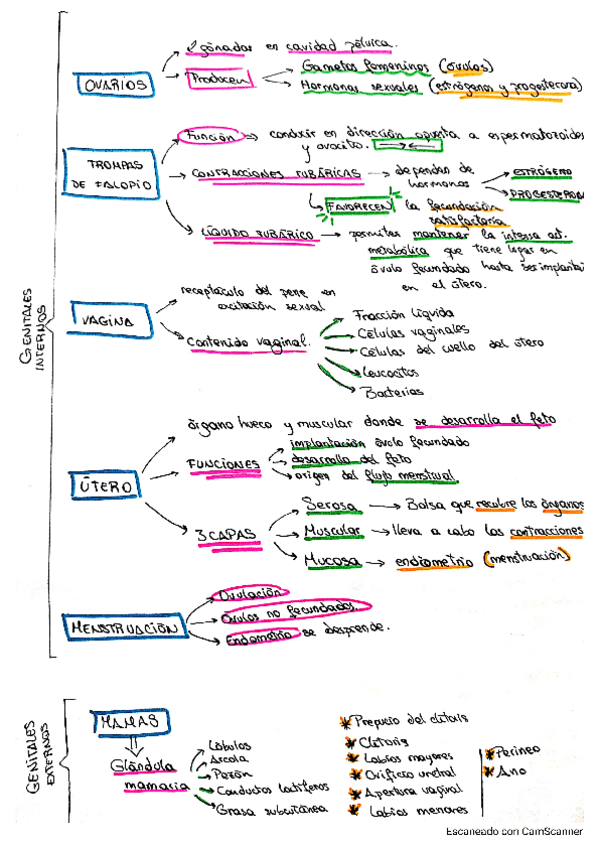 GENITALES INTERNOS
OVARIOS
2 gónadas en cavidad pélvica.
Producen
Gametos femeninos (óvulos)
Hormonas sexuales (estrógenos y progesterona)
TROMPAS DE FALOPIO
Función → conducir en dirección opuesta a espermatozoides
y ovocito.
CONTRACCIONES TUBÁRICAS → dependen de
hormonas
ESTRÓGENO
PROGESTERONA
FAVORECEN la fecundación
satisfactoria
LÍQUIDO TUBÁRICO → permites mantener la intensa act.
metabólica que tiene lugar en
óvulo fecundado hasta ser implanta
en el útero.
VAGINA
receptáculo del pene en
excitación sexual
Contenido vaginal.
Fracción líquida
Células vaginales
Células del cuello del útero
Leucocitos
Bacterias
ÚTERO
órgano hueco y muscular donde se desarrolla el feto
FUNCIONES
implantación óvulo fecundado
desarrollo del feto
origen del flujo menstrual.
3 CAPAS
Serosa → Bolsa que recubre los órganos
Muscular → lleva a cabo las contracciones
Mucosa → endometrio (menstruación)
MENSTRUACIÓN
Ovulación
Óvulos no fecundados.
Endometrio se desprende.
GENITALES EXTERNOS
MAMAS
Glándula
mamaria
Lóbulos
Areola
Pezón
Conductos lactíferos
Grasa subcutánea
* Prepucio del clítoris
* Clítoris
* Labios mayores
* Orificio uretral
* Apertura vaginal
* Labios menores
* Perineo
* Ano
Escaneado con CamScanner